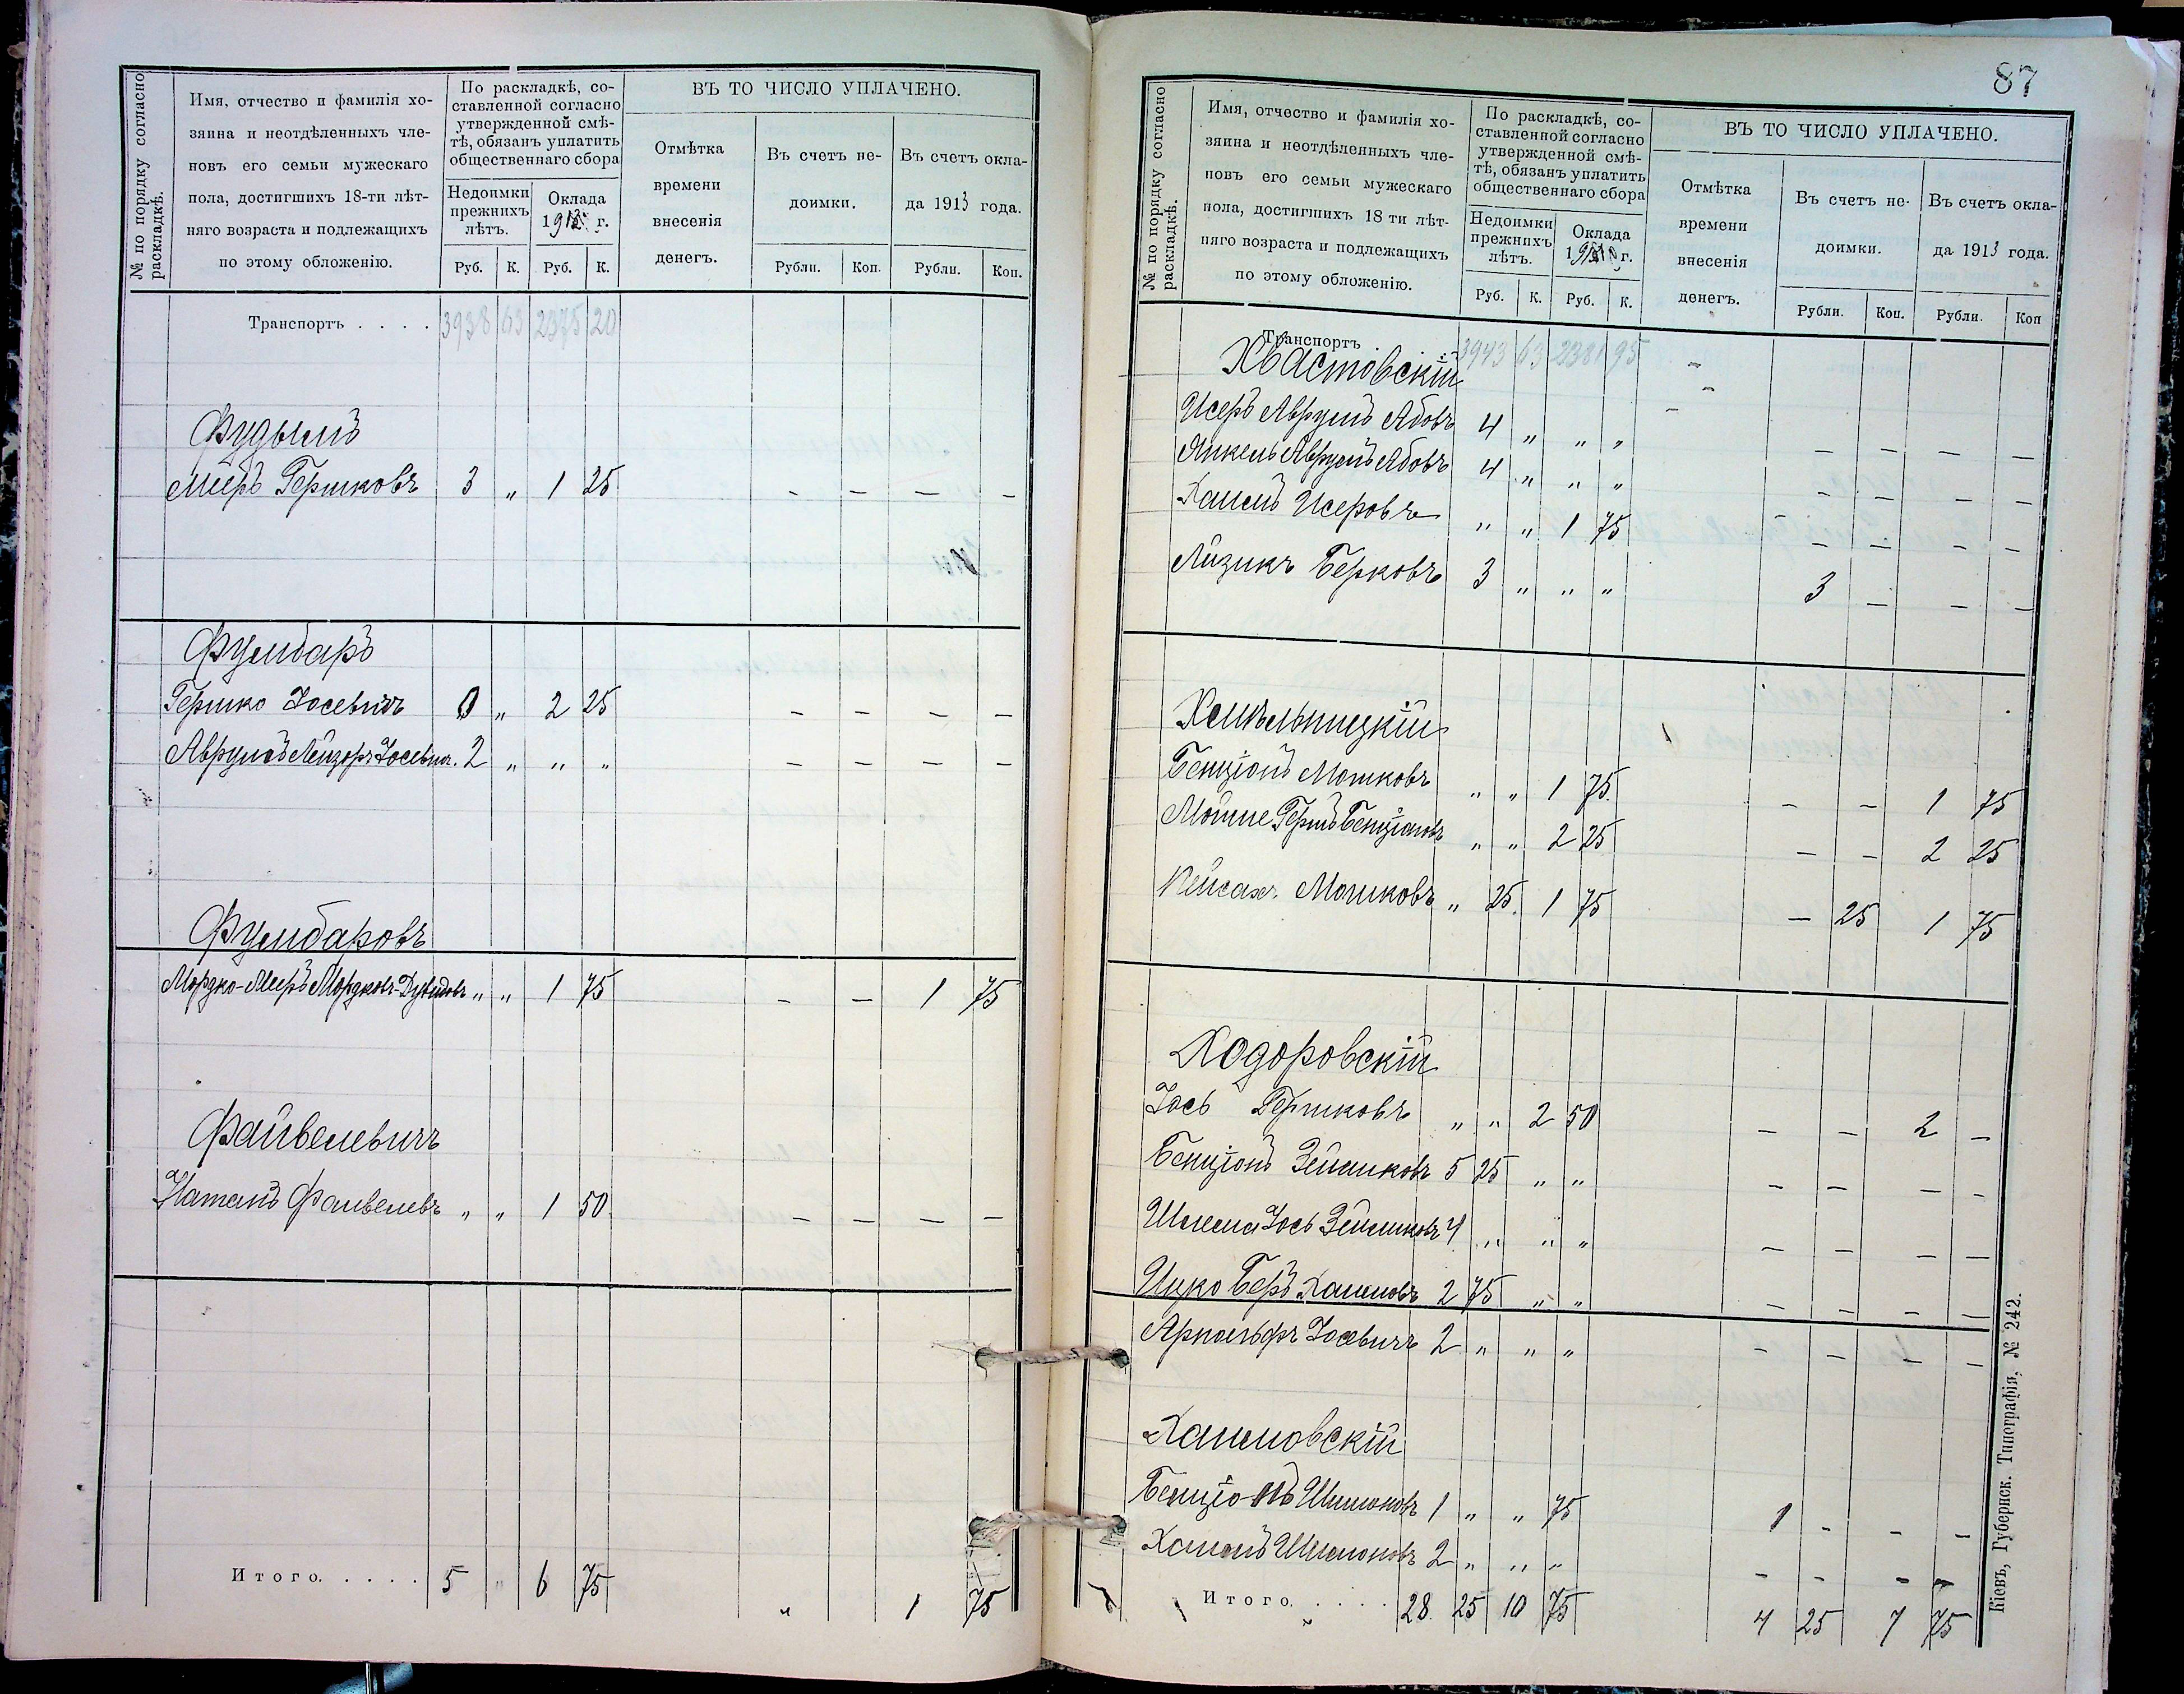 № по порядку согласно
раскладкѣ.
Имя, отчество и фамилія хо-
зяина и неотдѣленныхъ чле-
новъ его семьи мужескаго
пола, достигшихъ 18-ти лѣт-
няго возраста и подлежащихъ
по этому обложенію.
По раскладкѣ, со-
ставленной согласно
утвержденной смѣ-
тѣ, обязанъ уплатить
общественнаго сбора
Недоимки
прежнихъ
лѣтъ.
Оклада
191 г.
Руб. К. Руб. К.
ВЪ ТО ЧИСЛО УПЛАЧЕНО.
Отмѣтка
времени
внесенія
денегъ.
Въ счетъ не-
доимки.
Въ счетъ окла-
да 1913 года.
Рубли. Коп. Рубли. Коп.
Транспортъ . . . . 3938 63 2375 20
Фудымъ
Мееръ Гершковъ 3 „ 1 25 - - - -
Фумбаръ
Гершко Іосевичъ „ 2 25 - - - -
Аврумъ Лейзоръ Іосевич. 2 „ „ „ - - - -
Фумбаровъ
Мордко-Мееръ Мордковъ-Дувидовъ „ „ 1 75 - - 1 75
Файвелевичъ
Натанъ Файвелевъ „ „ 1 50 - - - -
Итого. . . . . 5 „ 6 75 „ 1 75
87
№ по порядку согласно
раскладкѣ.
Имя, отчество и фамилія хо-
зяина и неотдѣленныхъ чле-
новъ его семьи мужескаго
пола, достигшихъ 18 ти лѣт-
няго возраста и подлежащихъ
по этому обложенію.
По раскладкѣ, со-
ставленной согласно
утвержденной смѣ-
тѣ, обязанъ уплатить
общественнаго сбора
Недоимки
прежнихъ
лѣтъ.
Оклада
191 г.
Руб. К. Руб. К.
ВЪ ТО ЧИСЛО УПЛАЧЕНО.
Отмѣтка
времени
внесенія
денегъ.
Въ счетъ не-
доимки.
Въ счетъ окла-
да 1913 года.
Рубли. Коп. Рубли. Коп
Транспортъ . . . 3943 63 2381 95
Хвастовскій
Исеръ Аврумъ Абовъ 4 „ „ „ - - - -
Янкель Аврумъ Абовъ 4 „ „ „ - - - -
Хаимъ Исеровъ „ „ 1 75 - - - -
Айзикъ Берковъ 3 „ „ „ 3 - - -
Хмѣльницкій
Бенціонъ Мошковъ „ „ 1 75 - - 1 75
Мойше Гершъ Бенціоновъ „ „ 2 25 - - 2 25
Пейсахъ Мошковъ „ 25 1 75 - 25 1 75
Ходоровскій
Іось Гершковъ „ „ 2 50 - - 2 -
Бенціонъ Зейликовъ 5 25 „ „ - - - -
Шлема Іось Зейликовъ 4 „ „ „ - - - -
Ицко Беръ Хаимовъ 2 75 „ „ - - - -
Іосевичъ 2 „ „ „ - - - -
Хаимовскій
Бенціонъ Шимоновъ 1 „ „ 75 1 - - -
Хаимъ Шимоновъ 2 „ „ „ - - - -
Итого. . . . . 28 25 10 75 4 25 7 75
Кіевъ, Губернск. Типографія, № 242.